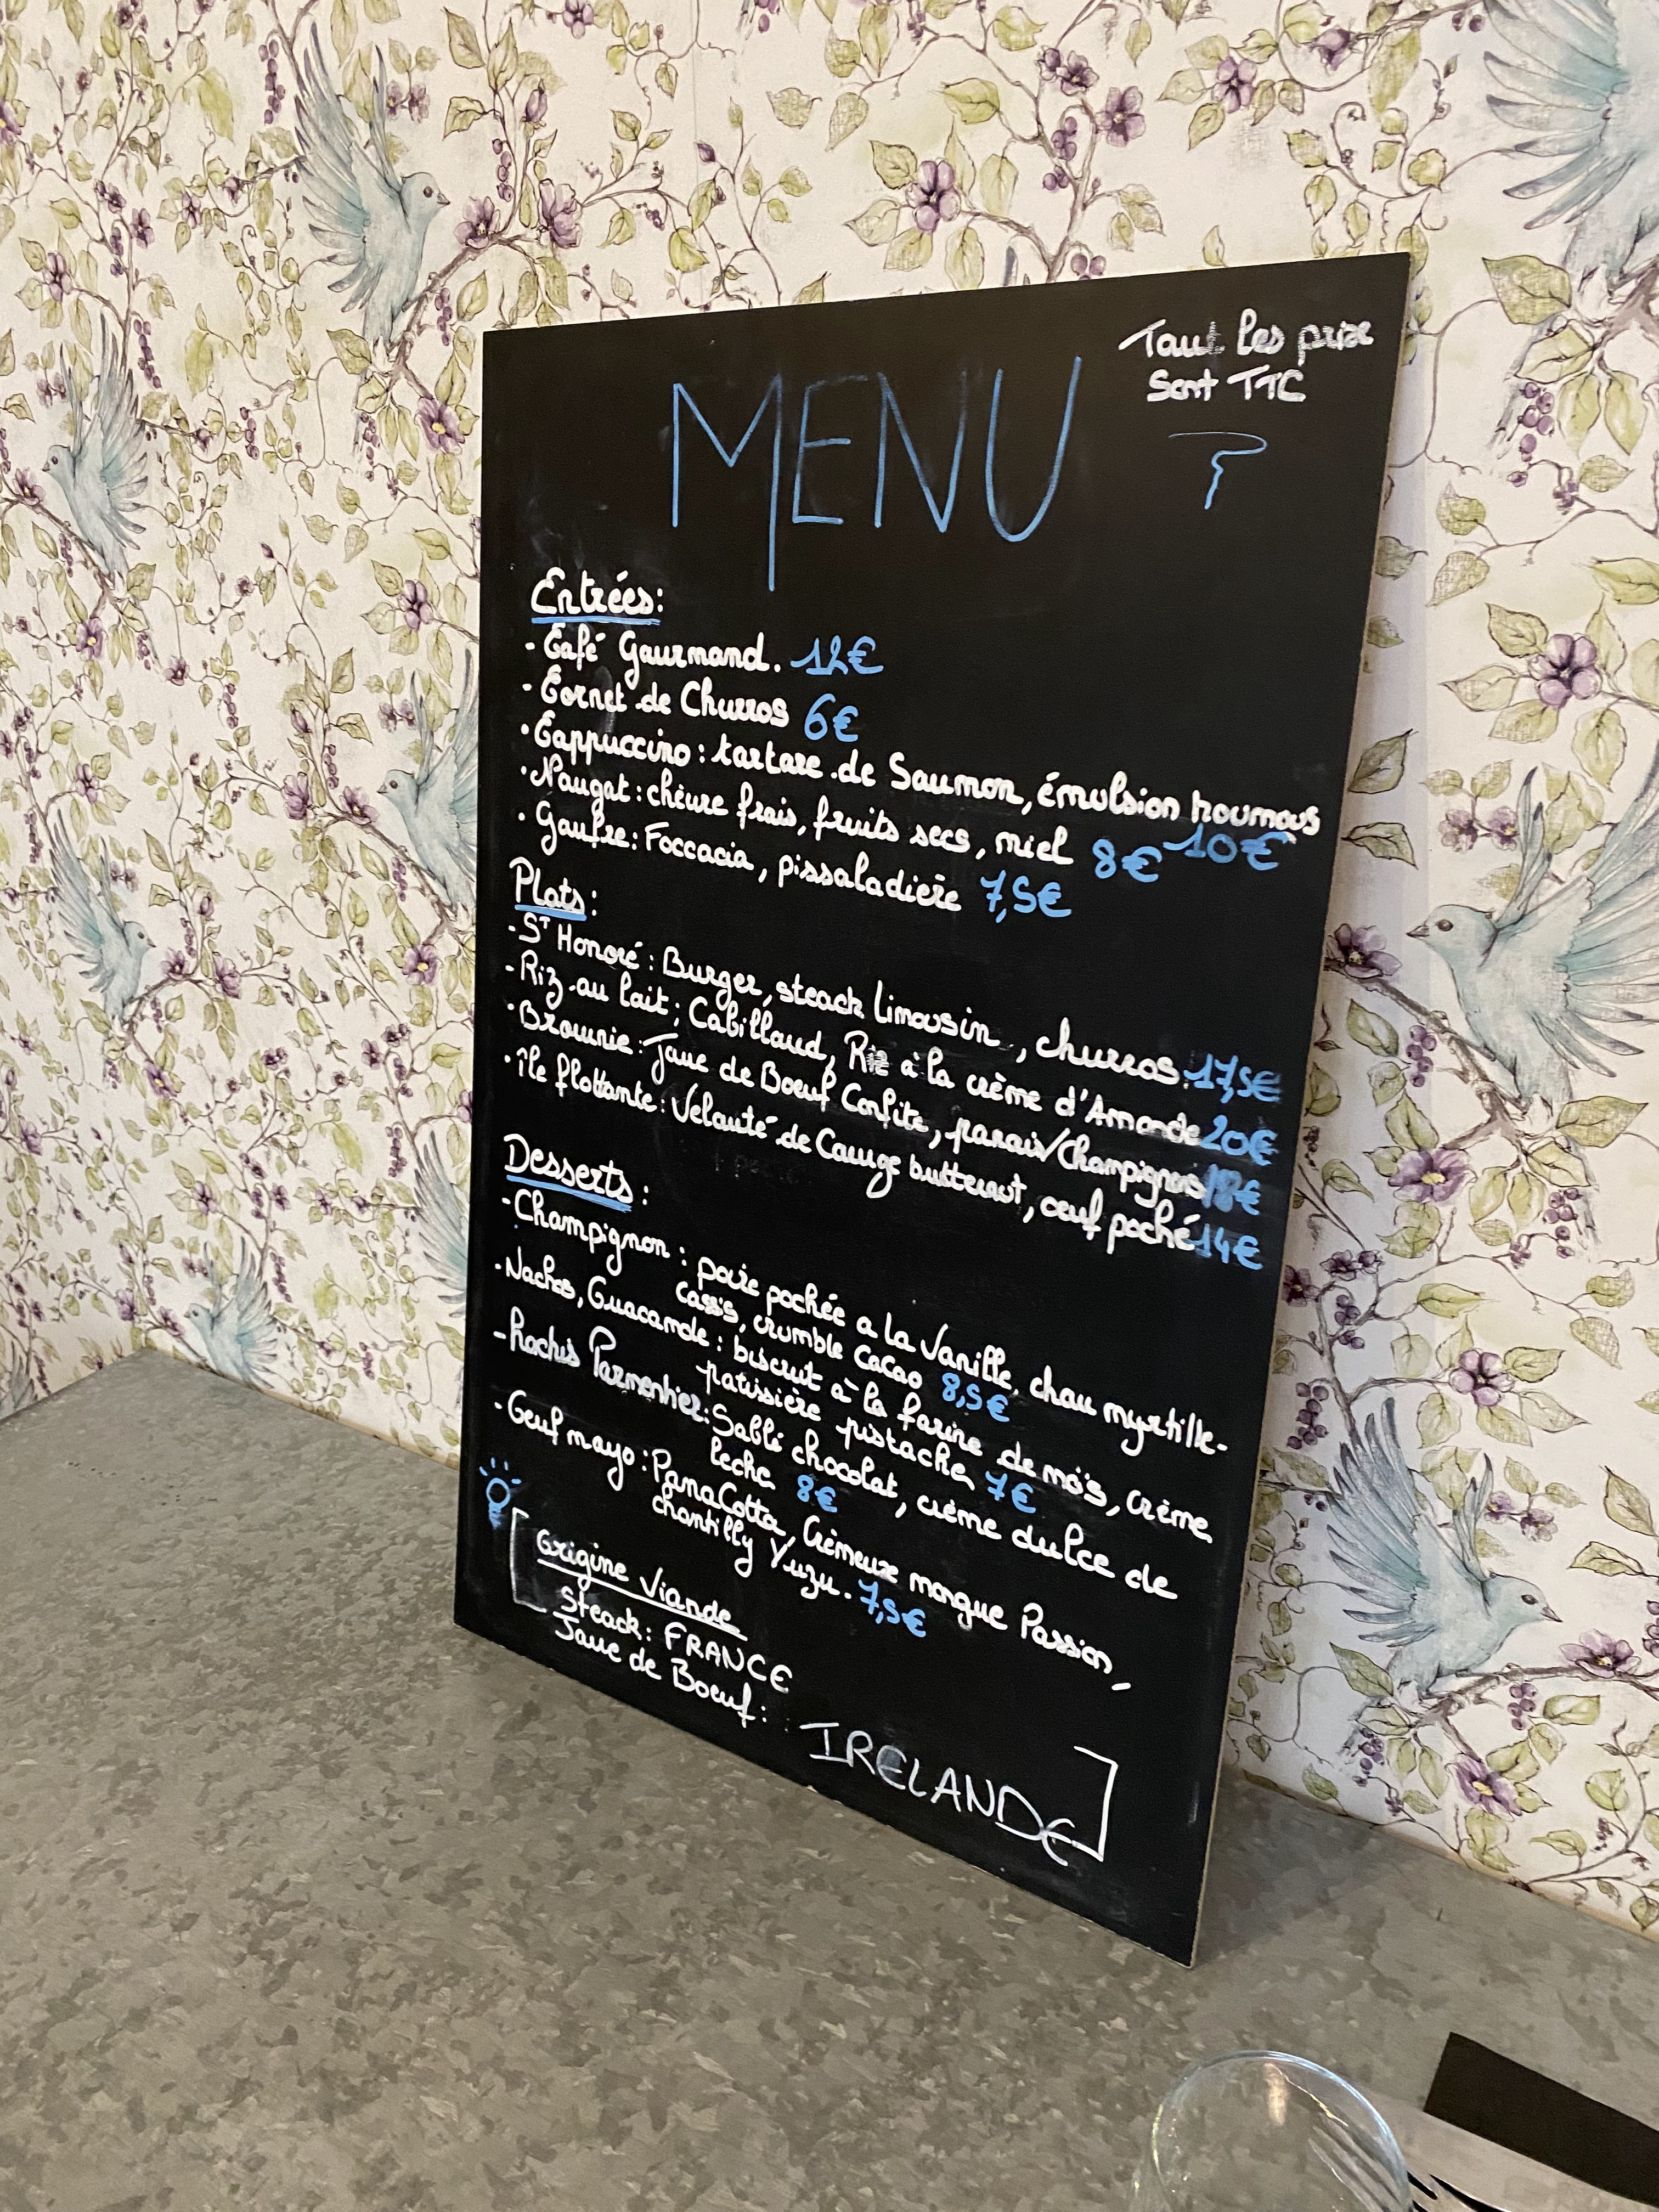 Tout les prix
sont TTC
MENU
Entrées:
- Café Gourmand. 12€
- Cornet de Churros 6€
· Cappuccino: tartare de Saumon, émulsion houmous
10€
· Nougat: chèvre frais, fruits secs, miel 8€
· Gaufre: Foccacia, pissaladière 7,5€
Plats:
· ST Honoré: Burger, steack limousin, churros. 17,5€
· Riz au lait; Cabillaud, Riz à la crème d'Amande 20€
· Brownie: Joue de Boeuf Confite, panais/Champignons 18€
· île flottante: Velouté de Courge butternut, oeuf poché 14€
Desserts:
- Champignon: poire pochée a la Vanille, chou myrtille-
cassis, crumble cacao 8,5€
· Nachos, Guacamole: biscuit à la farine de maïs, crème
patissière pistache 7€
- Hachis Parmentier: Sablé chocolat, crème dulce de
leche 8€
· Oeuf mayo: PanaCotta, Crémeux mangue Passion,
chantilly Yuzu. 7,5€
Origine Viande
Steack: FRANCE
Joue de Boeuf: IRELANDE